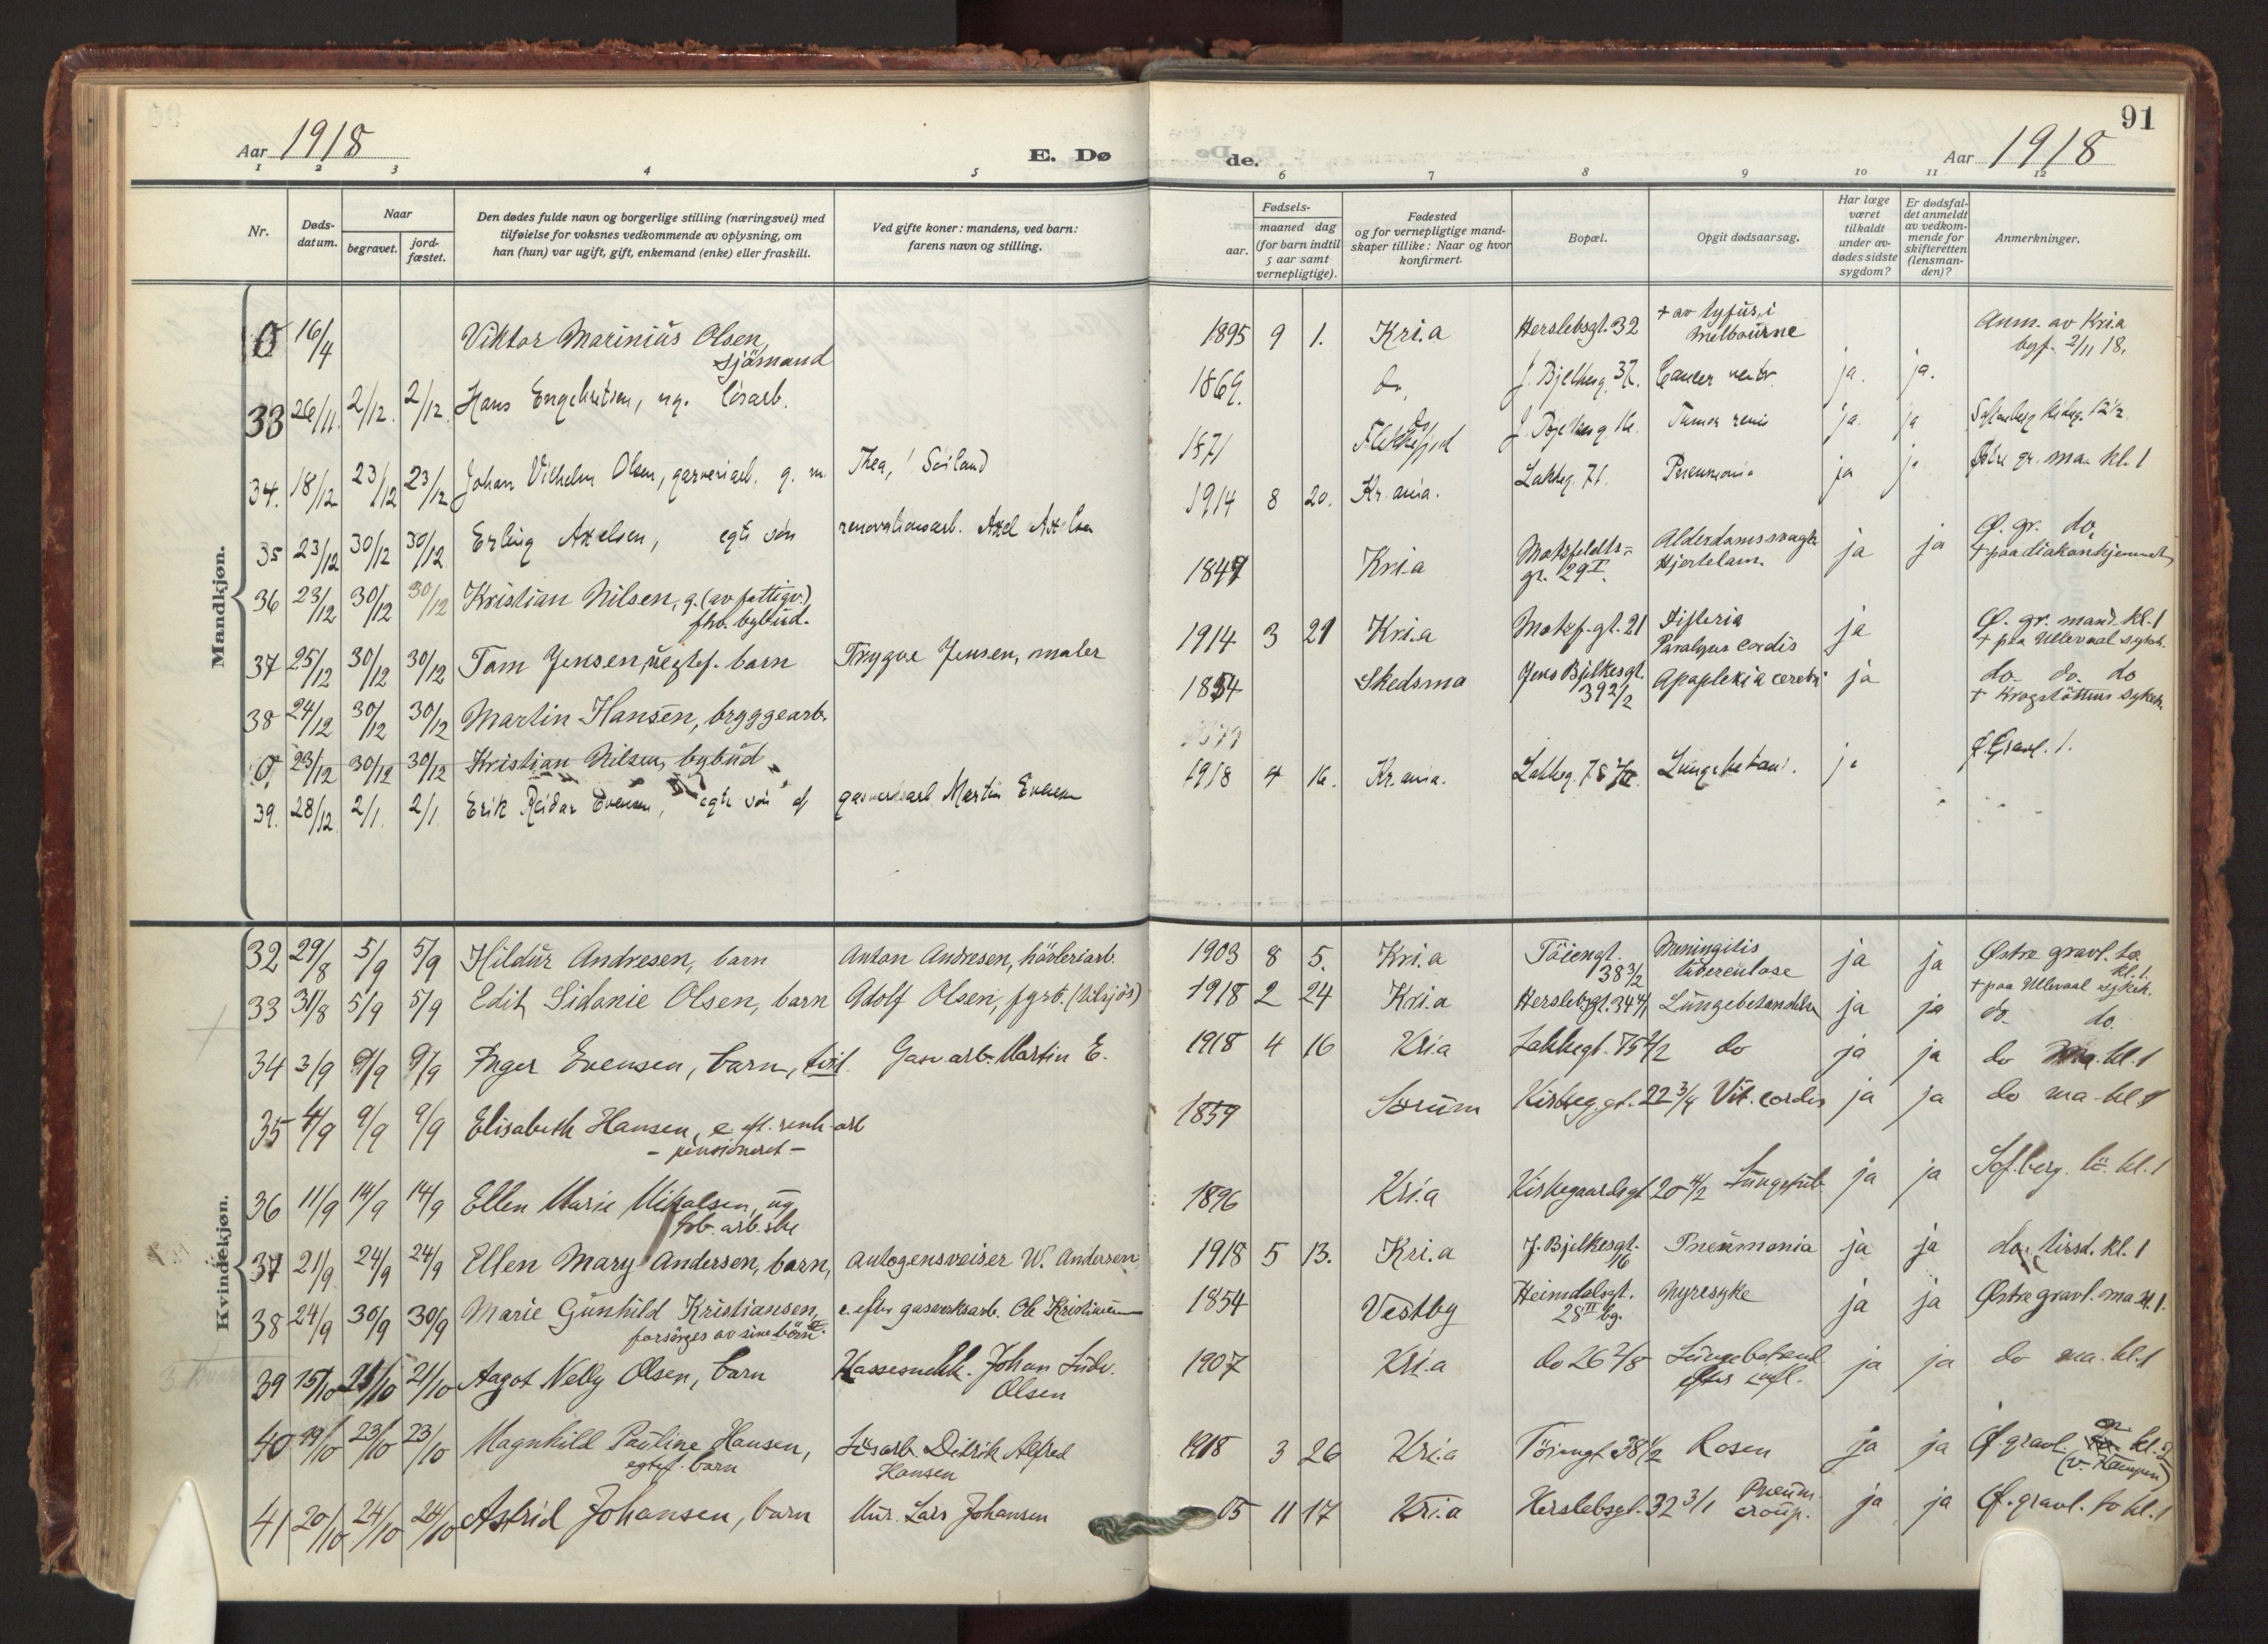 91
Aar 1918
E. Dø
de.
Aar 1918
1 2 3 4 5 6 7 8 9 10 11 12
Nr.
Døds-
datum.
Naar
begravet.
jord-
fæstet.
Den dødes fulde navn og borgerlige stilling (næringsvei) med
tilføielse for voksnes vedkommende av oplysning, om
han (hun) var ugift, gift, enkemand (enke) eller fraskilt.
Ved gifte koner: mandens, ved barn:
farens navn og stilling.
Fødsels-
aar.
maaned dag
(for barn indtil
5 aar samt
vernepligtige).
Fødested
og for vernepligtige mand-
skaper tillike: Naar og hvor
konfirmert.
Bopæl.
Opgit dødsaarsag.
Har læge
været
tilkaldt
under av-
dødes sidste
sygdom?
Er dødsfal-
det anmeldt
av vedkom-
mende for
skifteretten
(lensman-
den)?
Anmerkninger.
Mandkjøn.
0 16/4 Viktor Marinius Olsen, 1895 9 1. Kri.a Herslebsgt. 32 + av tyfus, i Anm. av Kria
sjömand Melbourne byf. 2/11 18.
33 26/11. 2/12. 2/12. Hans Engebretsen, ug. løsarb. 1869. do, J. Bjelkesg. 37. Cancer ventr. ja. ja.
34. 18/12 23/12 23/12 Johan Vilhelm Olsen, garveriarb. g. m. Thea, 1871 Flekkefjord Tumor renis ja. ja
35 23/12 30/12 30/12 Erling Axelsen, egte søn renovationsarb. Axel Axelsen 1914 8 20. Kr.ania. Lakkeg. 71. Pneumonia ja ja Østre gr. ma. kl. 1
36 23/12 30/12 30/12 Kristian Nilsen, g. (av fattigv.) 1847 Kri.a Motzfeldts- Alderdomssvagh. ja ja Ø. gr. do,
fhv. bybud. gt. 29 I. Hjertelam. + paa diakonhjemmet
37 25/12 30/12 30/12 Tom Jensen, uegtef. barn Trygve Jensen, maler 1914 3 21 Kri.a Motzf. gt. 21 Difteria ja Ø. gr. mand. kl. 1
Paralysis cordis + paa Ullevaal sykeh.
38 24/12 30/12 30/12 Martin Hansen, bryggearb. 1854 Skedsmo Jens Bjelkesgt. Apoplexia cerebri ja do do. do
39 2/2 + Krogstøttens sykeh.
0. 23/12 30/12 30/12 Kristian Nilsen, bybud
39. 28/12. 2/1. 2/1. Erik Reidar Evensen, egte søn af gasverksarb. Martin Evensen 1918 4 16. Kr.ania. Lakkeg. 75 Lungebetænd. ja Ø. Gravl. 1.
Kvindekjøn.
32 29/8 5/9 5/9 Hildur Andresen, barn Anton Andresen, høvleriarb. 1903 8 5. Kri.a Töiengt. Meningitis ja ja Østre gravl. to.
38 3/2 tuberculose kl. 1.
+ paa Ullevaal sykeh.
33 31/8 5/9 5/9 Edith Sidonie Olsen, barn Adolf Olsen, fyrb. (tilsjös) 1918 2 24 Kri.a Herslebsgt. 34 4/1 Lungebetændelse ja ja do. do.
34 3/9 9/9 9/9 Inger Evensen, barn, tvil. Gasv.arb. Martin E. 1918 4 16 Kria Lakkegt. 75 4/2 do ja ja do ma. kl. 1
35 4/9 9/9 9/9 Elisabeth Hansen, e. eft. renh. arb 1859 Sørum Kirkeg.gt. 22 3/4 Vit. cordis ja ja do ma. kl. 1
- pensioneret -
36 11/9 14/9 14/9 Ellen Marie Mikalsen, ug 1896 Kri.a Kirkegaardsgt 20 4/2 Lungetub. ja ja Sof.berg. lö. kl. 1
tob. arb.ske
37 21/9 24/9 24/9 Ellen Mary Andersen, barn, autogensveiser W. Andersen 1918 5 13. Kri.a J. Bjelkesgt. Pneumonia ja ja do, tirsd. kl. 1
16
38 24/9 30/9 30/9 Marie Gunhild Kristiansen, e. efter gasverksarb. Ole Kristiansen 1854 Vestby Heimdalsgt. Nyresyke ja ja Østre gravl. ma kl. 1.
forsørges av sine börn. 28 III bg.
39 15/10 21/10 21/10 Aagot Nelly Olsen, barn Kassesnekk. Johan Ludv. 1907 Kri.a do 26 2/8 Lungebetænd. ja ja do ma. kl. 1
Olsen efter infl.
40 19/10 23/10 23/10 Magnhild Pauline Hansen, Løsarb. Didrik Alfred 1918 3 26 Kri.a Töiengt 38 1/2 Rosen ja ja Ø. gravl. on kl. 2
egtef. barn Hansen (v. Kampen)
41 20/10 24/10 24/10 Astrid Johansen, barn Mur. Lars Johansen 05 11 17 Kri.a Herslebsgt. 32 3/1 Pneum. ja ja Ø. gravl. to kl. 1
croup.